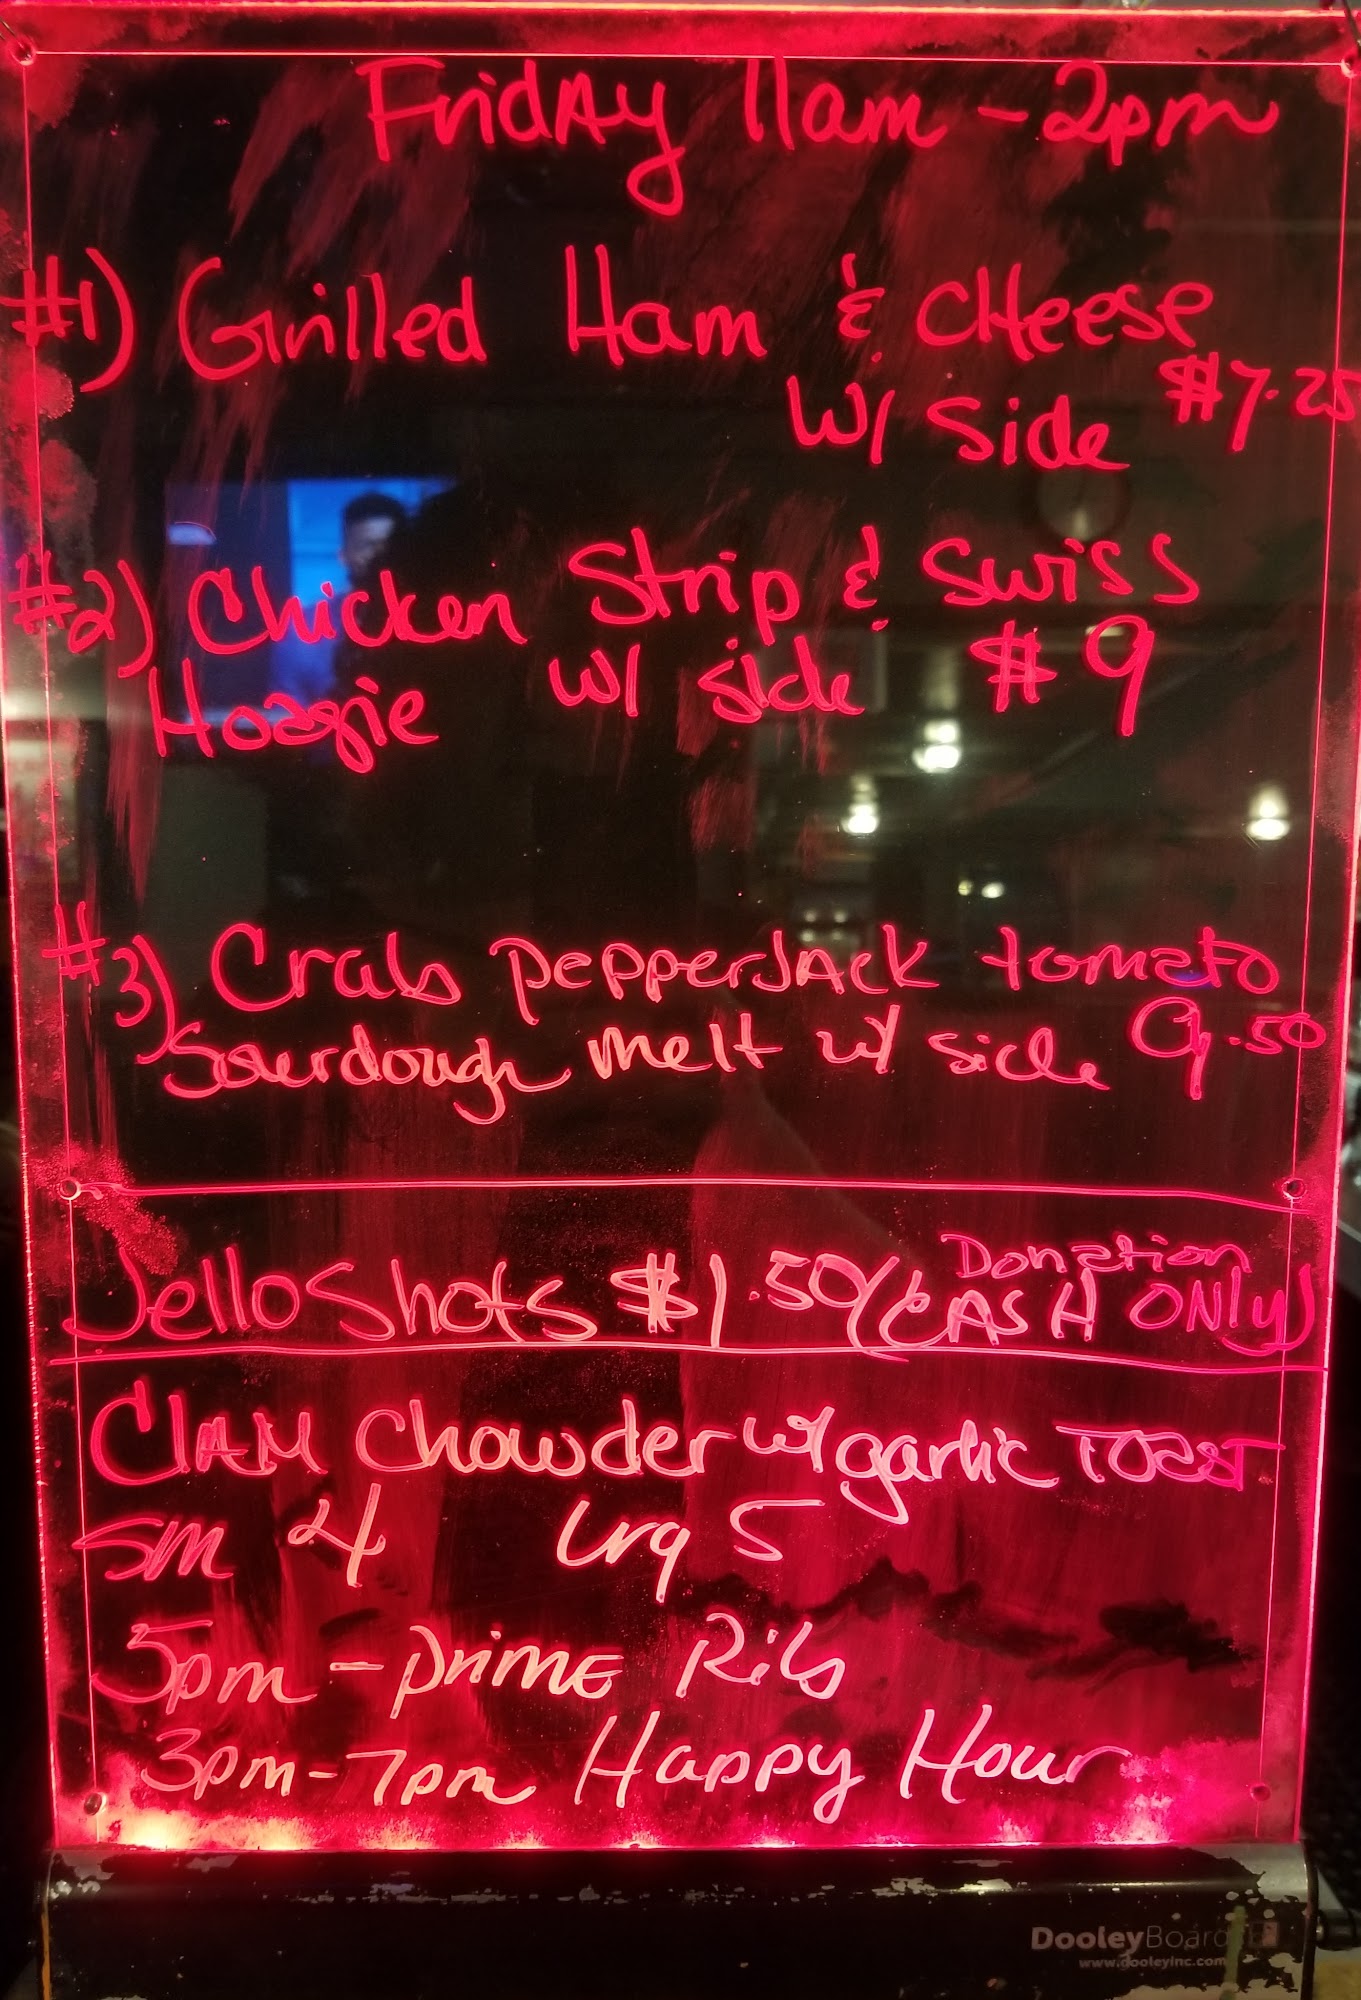 Friday 11am - 2pm
#1) Grilled Ham & Cheese
w/ side $7.25
#2) Chicken Strip & Swiss
Hoagie w/ side $9
#3) Crab pepperJAck tomato
Sourdough melt w/ side 9.50
Jello Shots $1.50 (Donation
CASH ONly)
ClAM Chowder w/ garlic TOast
sm 4 Lrg 5
5pm - priME Rib
3pm - 7pm Happy Hour
DooleyBoard
www.dooleyinc.com